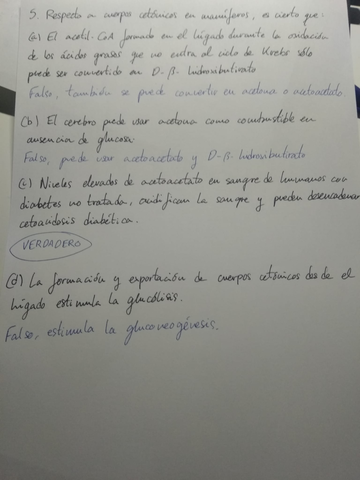 5. Respecto a cuerpos cetónicos en mamíferos, es cierto que:
(a) El acetil-CoA formado en el hígado durante la oxidación
de los ácidos grasos que no entra al ciclo de Krebs sólo
puede ser convertido en D-β-hidroxibutirato
Falso, también se puede convertir en acetona o acetoacetato
(b) El cerebro puede usar acetona como combustible en
ausencia de glucosa.
Falso, puede usar acetoacetato y D-β-hidroxibutirato
(c) Niveles elevados de acetoacetato en sangre de humanos con
diabetes no tratada, acidifican la sangre y pueden desencadenar
cetoacidosis diabética.
VERDADERO
(d) La formación y exportación de cuerpos cetónicos desde el
hígado estimula la glucólisis.
Falso, estimula la gluconeogénesis.